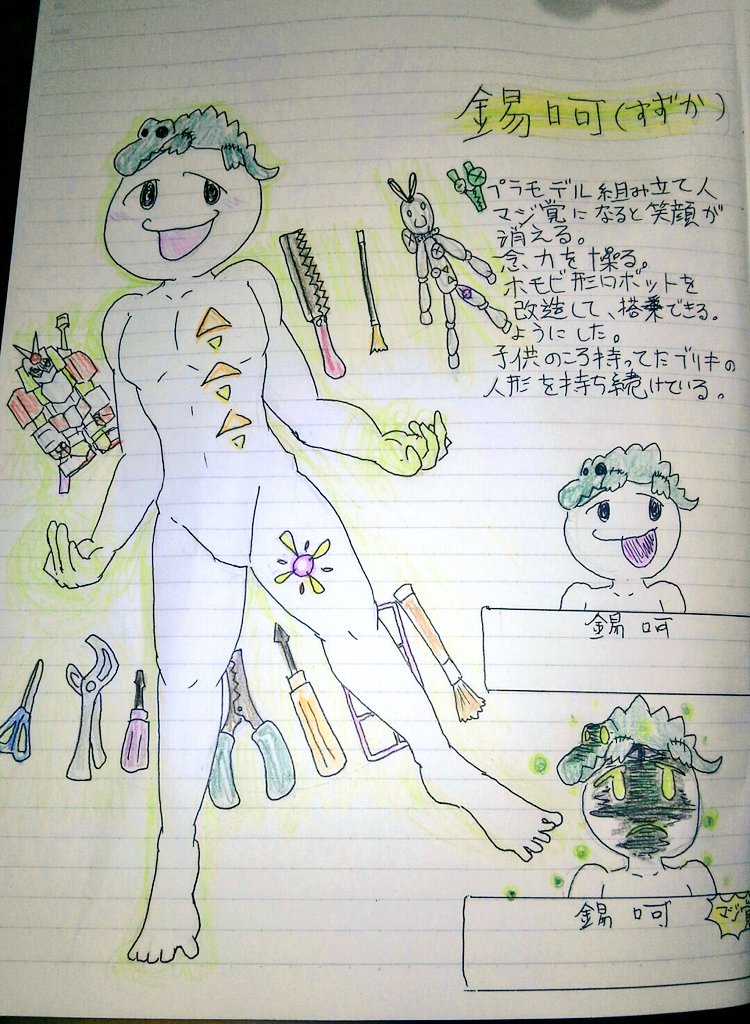 錫呵(すずか)
プラモデル組み立て人
マジ覚になると笑顔が
消える。
念力を操る。
ホモビ形ロボットを
改造して、搭乗できる。
ようにした。
子供のころ持ってたブリキの
人形を持ち続けている。
錫呵
錫呵
マジ覚